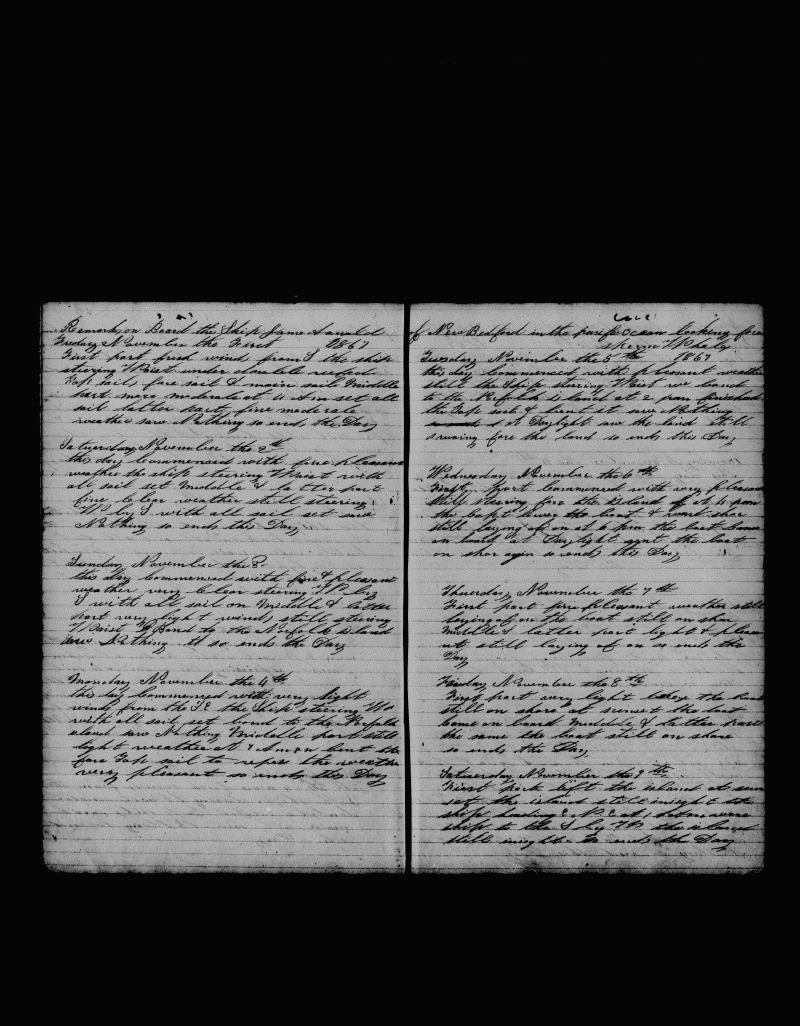 Remarks on Board the Ship James Arnold
Friday November the First 1867
First part fresh wind from S the ship
steering West under double reefed
Top sails fore sail & main sail Middle
part more moderate at 4 Am set all
sail latter part fine moderate
weather saw Nothing so ends the Day
Saturday November the 2th
this day Commenced with fine pleasant
weather the ship steering West with
all sail set Middle & latter part
fine Clear weather still steering
W by S with all sail set saw
Nothing so ends this Day
Sunday November the 3
this day Commenced with fine & pleasant
weather very Clear steering W by
S with all sail on Middle & latter
part very light wind still steering
West Bond to the Norfolk island
saw Nothing so ends the Day
Monday November the 4th
this day Commenced with very light
winds from the SE the Ship steering
with all sail set bond to the Norfolk
island saw Nothing Middle part still
light weather at 7 Am on bent the
fore Top sail to repar the weather
very pleasant so ends this Day
of New Bedford in the pasific Ocean looking fore
sperm Whales
Tuesday November the 5th 1867
this day Commenced with pleasant weather
still the Ship steering West we bond
to the Norfolk island at 2 pm finished
the Top sail & bent it saw Nothing
at Daylight saw the land still
running fore the land so ends this Day
Wednesday November the 6th
First part Commenced with very pleasant
still steering fore the island at 4 pm
the Capt lower the boat & went shor
still laying of on at 6 pm the boat Came
on board at Daylight went the boat
on shor agin so ends this Day
Thursday November the 7th
First part fine pleasant weather still
laying of on the boat still on shor
Middle & latter part light & pleas
nt still laying of on so ends the
Day
Friday November the 8th
First part very light the boat
still on shore at sunset the boat
Came on board Middle & latter part
the same the boat still on shore
so ends the Day
Saturday November the 9th
First part left the island at sun
set the island still insight the
ship heading E N E at 1 Am wore
ship to the S by W the island
still insight so ends the Day